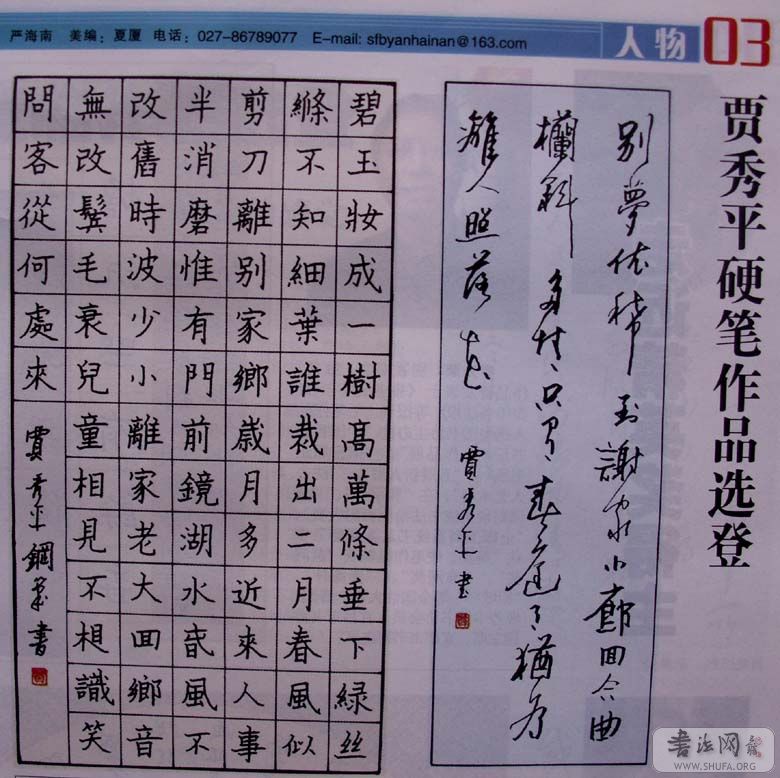 严海南 美编：夏厦 电话：027-86789077 E-mail: sfbyanhainan@163.com
人物 03
贾秀平硬笔作品选登
别夢依稀到謝家小廊回合曲
欄斜多情只有春庭月猶为
離人照落花
賈秀平書
碧玉妝成一樹髙萬條垂下緑絲
絛不知細葉誰裁出二月春風似
剪刀離别家鄉歲月多近來人事
半消磨惟有門前鏡湖水旾風不
改舊時波少小離家老大囬鄉音
無改鬢毛衰兒童相見不相識笑
問客從何處來
賈秀平鋼筆書
书法网
WWW.SHUFA.ORG